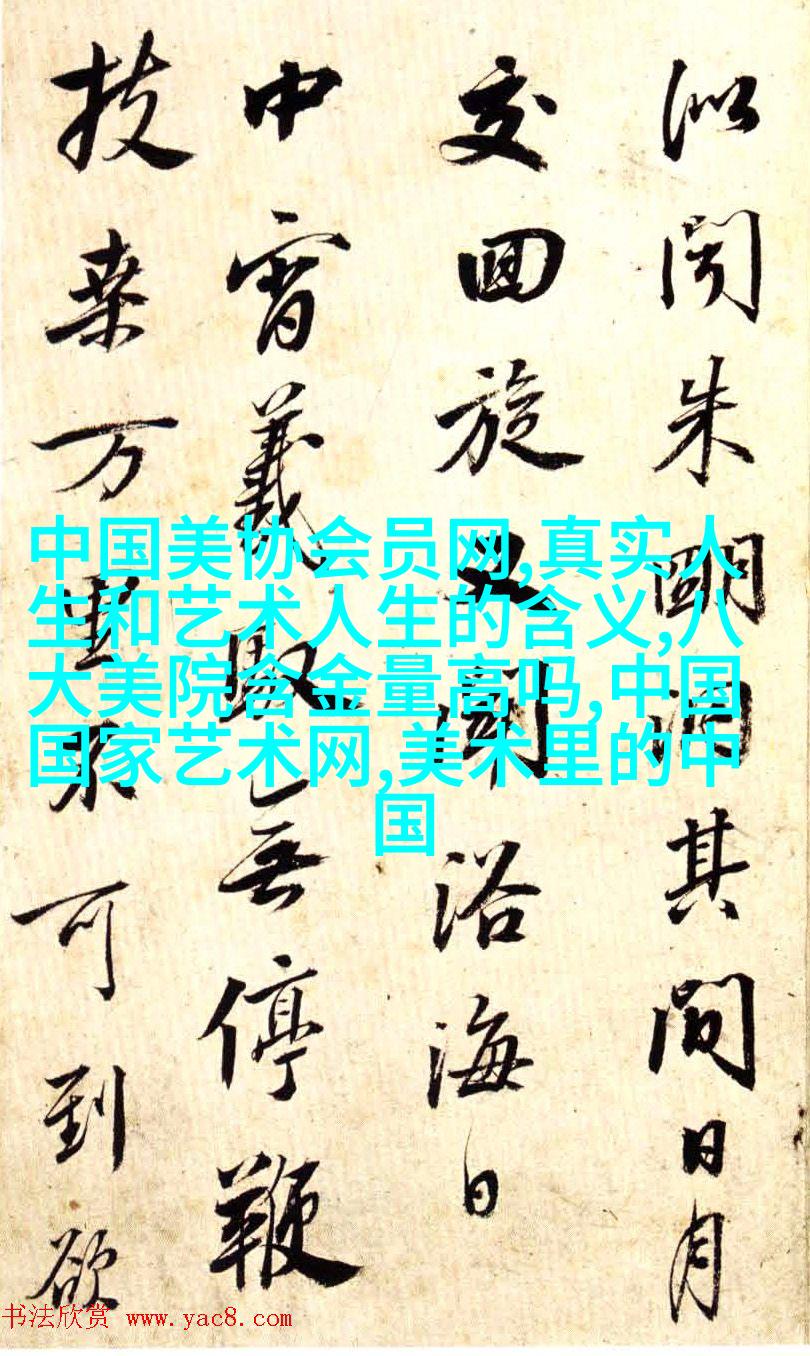 似聞朱明洞其間日月
交回旋又聞浴海日
中宵義馭無停鞭
扶桒万里不可到欲
中国美协会员网,真实人
生和艺术人生的含义,八
大美院含金量高吗,中国
国家艺术网,美术里的中
国
书法欣赏 www.yac8.com